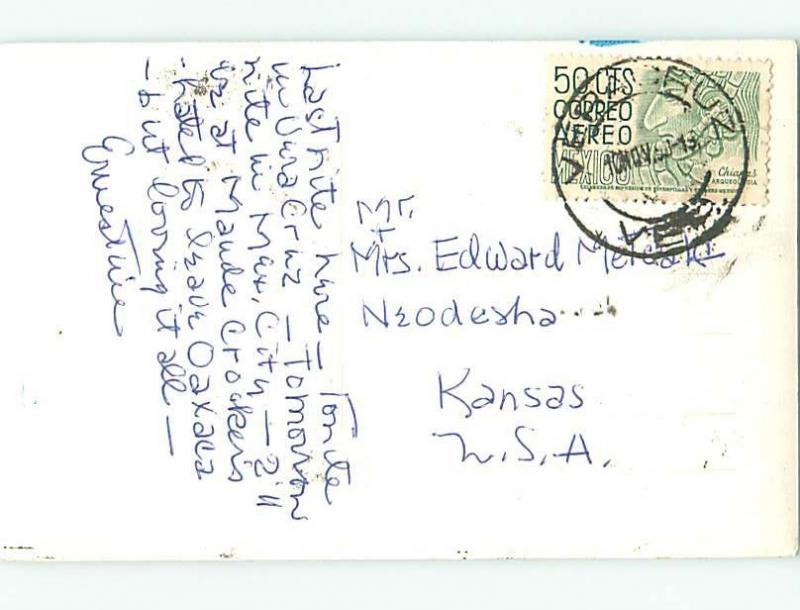 Last nite here – Tonite
in Vera Cruz – Tomorrow
nite in Mex. City – I'll
be at Maude Crocker's
– hated to leave Oaxaca
– but loving it all –
Ernestine
50 CTS
CORREO
AEREO
MEXICO
Chiapas
ARQUEOLOGIA
VERACRUZ
NOV
VER
Mr.
+
Mrs. Edward Metcalf
Neodesha
Kansas
U.S.A.